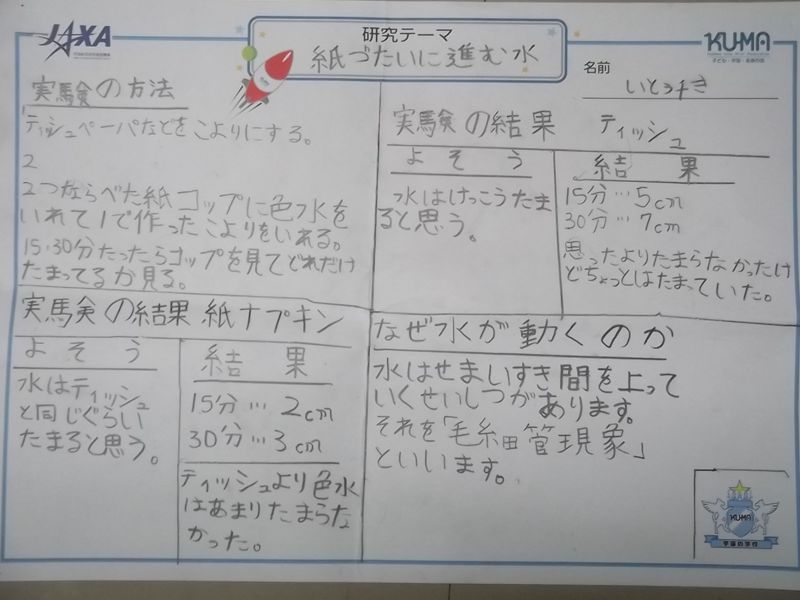 JAXA
研究テーマ
紙づたいに進む水
KUMA
子ども・宇宙・未来の会
名前
いとうチき
実験の方法
ティシュペーパなどをこよりにする。
2
2つならべた紙コップに色水を
いれて1で作ったこよりをいれる。
15・30分たったらコップを見てどれだけ
たまってるか見る。
実験の結果 ティッシュ
よそう
水はけっこうたま
ると思う。
結果
15分…5cm
30分…7cm
思ったよりたまらなかったけ
どちょっとはたまっていた。
実験の結果 紙ナプキン
よそう
水はティッシュ
と同じぐらい
たまると思う。
結果
15分…2cm
30分…3cm
ティッシュより色水
はあまりたまらな
かった。
なぜ水が動くのか
水はせまいすき間を上って
いくせいしつがあります。
それを「毛細管現象」
といいます。
KUMA
宇宙の学校